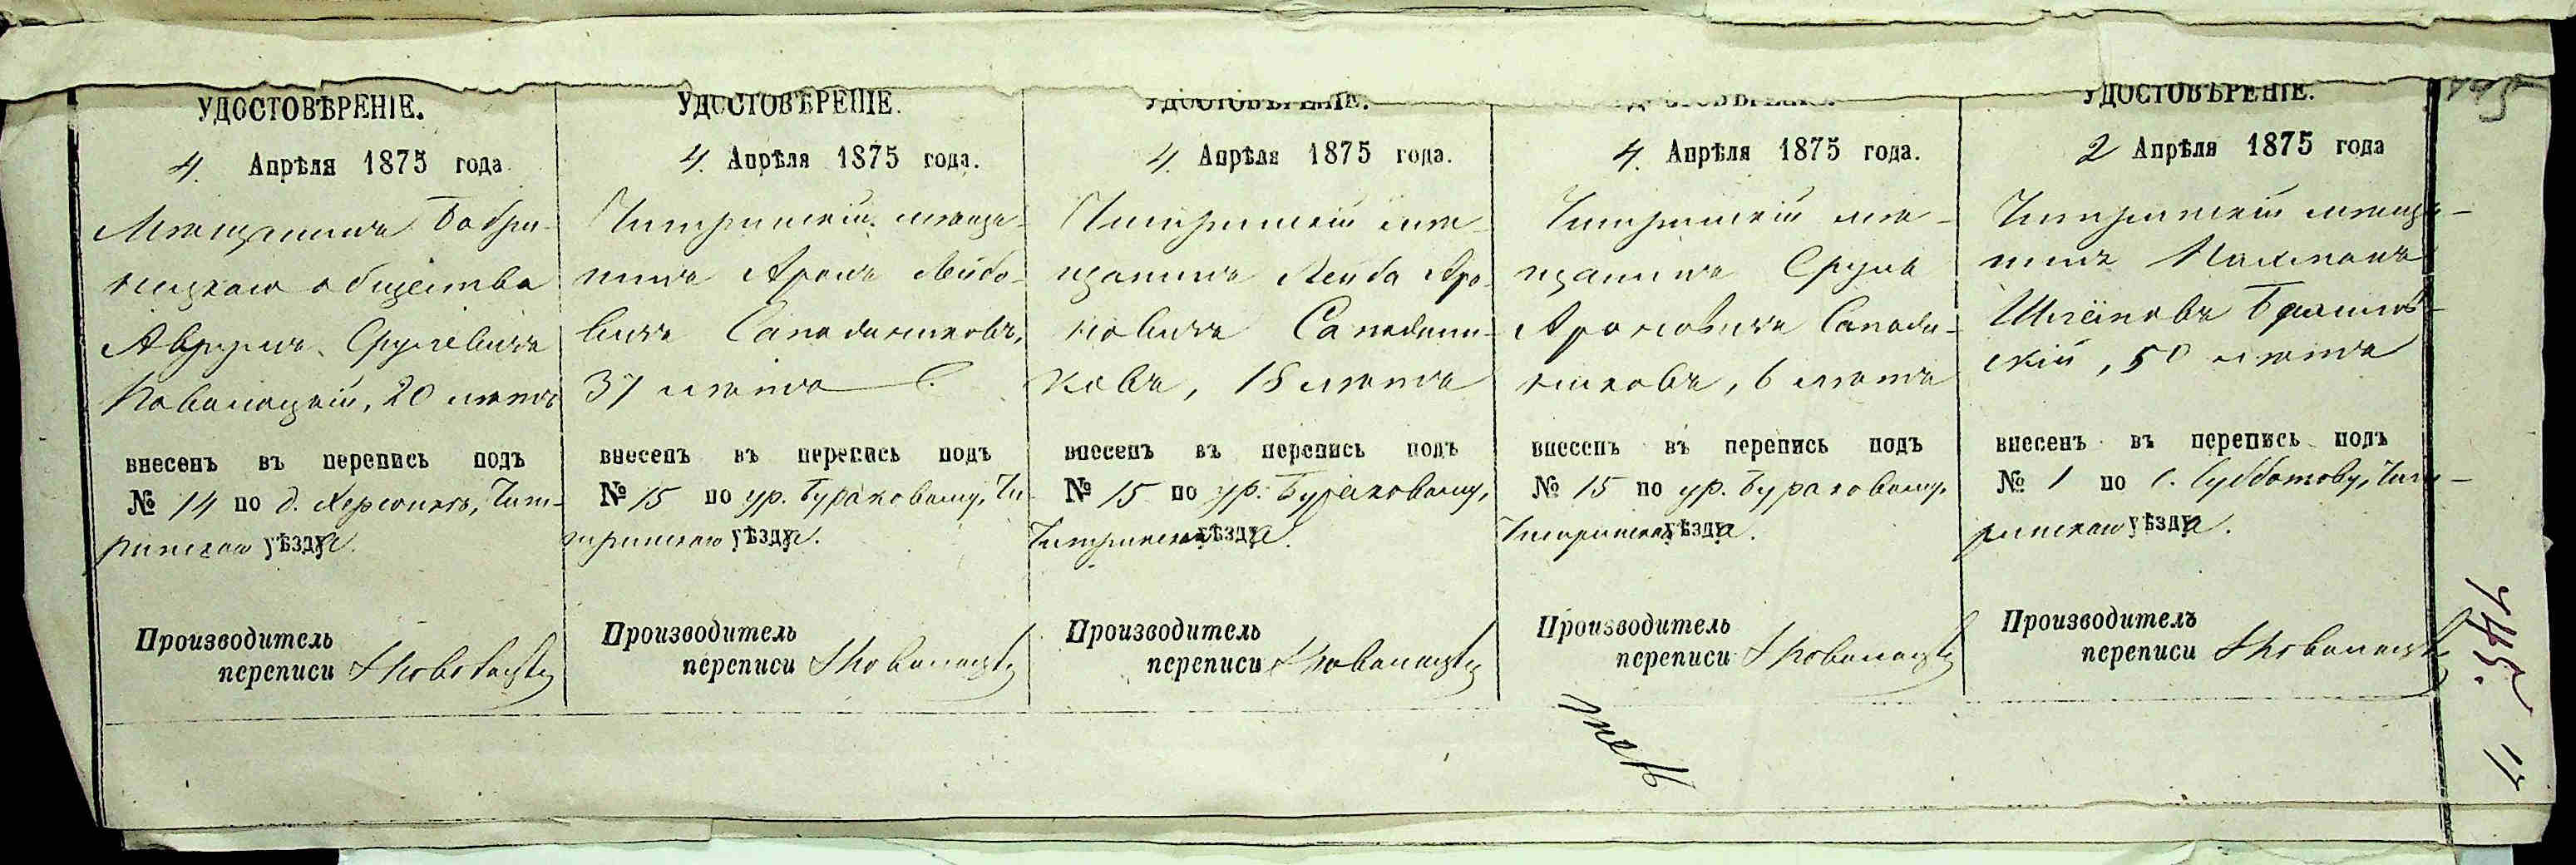 УДОСТОВѢРЕНІЕ.
4. Апрѣля 1875 года
Мѣщанинъ Бобри-
нецкаго общества
Аврумъ Срулевичъ
Ковалецкій, 20 лѣтъ
внесенъ въ перепись подъ
№ 14 по д. Херсонкѣ, Чиги-
ринскаго уѣзда.
Производитель
переписи
УДОСТОВѢРЕНІЕ.
4. Апрѣля 1875 года.
Чигиринскій мѣща-
нинъ Аронъ Лейбо-
вичъ Сападачниковъ,
37 лѣтъ
внесенъ въ перепись подъ
№ 15 по ур. Бураковому, Чи-
гиринскаго уѣзда.
Производитель
переписи
УДОСТОВѢРЕНІЕ.
4. Апрѣля 1875 года.
Чигиринскій мѣ-
щанинъ Лейба Аро-
новичъ
ковъ, 18 лѣтъ
внесенъ въ перепись подъ
№ 15 по ур. Бураковому,
Чигиринскаго уѣзда.
Производитель
переписи
УДОСТОВѢРЕНІЕ.
4. Апрѣля 1875 года.
Чигиринскій мѣ-
щанинъ Сруль
Ароновичъ
никовъ, 6 лѣтъ
внесенъ въ перепись подъ
№ 15 по ур. Бураковому,
Чигиринскаго уѣзда.
Производитель
переписи
УДОСТОВѢРЕНІЕ.
2 Апрѣля 1875 года
Чигиринскій мѣща-
нинъ Нахманъ
Шлёмовъ
скій, 50 лѣтъ
внесенъ въ перепись подъ
№ 1 по с. Субботову, Чиги-
ринскаго уѣзда.
Производитель
переписи
145.